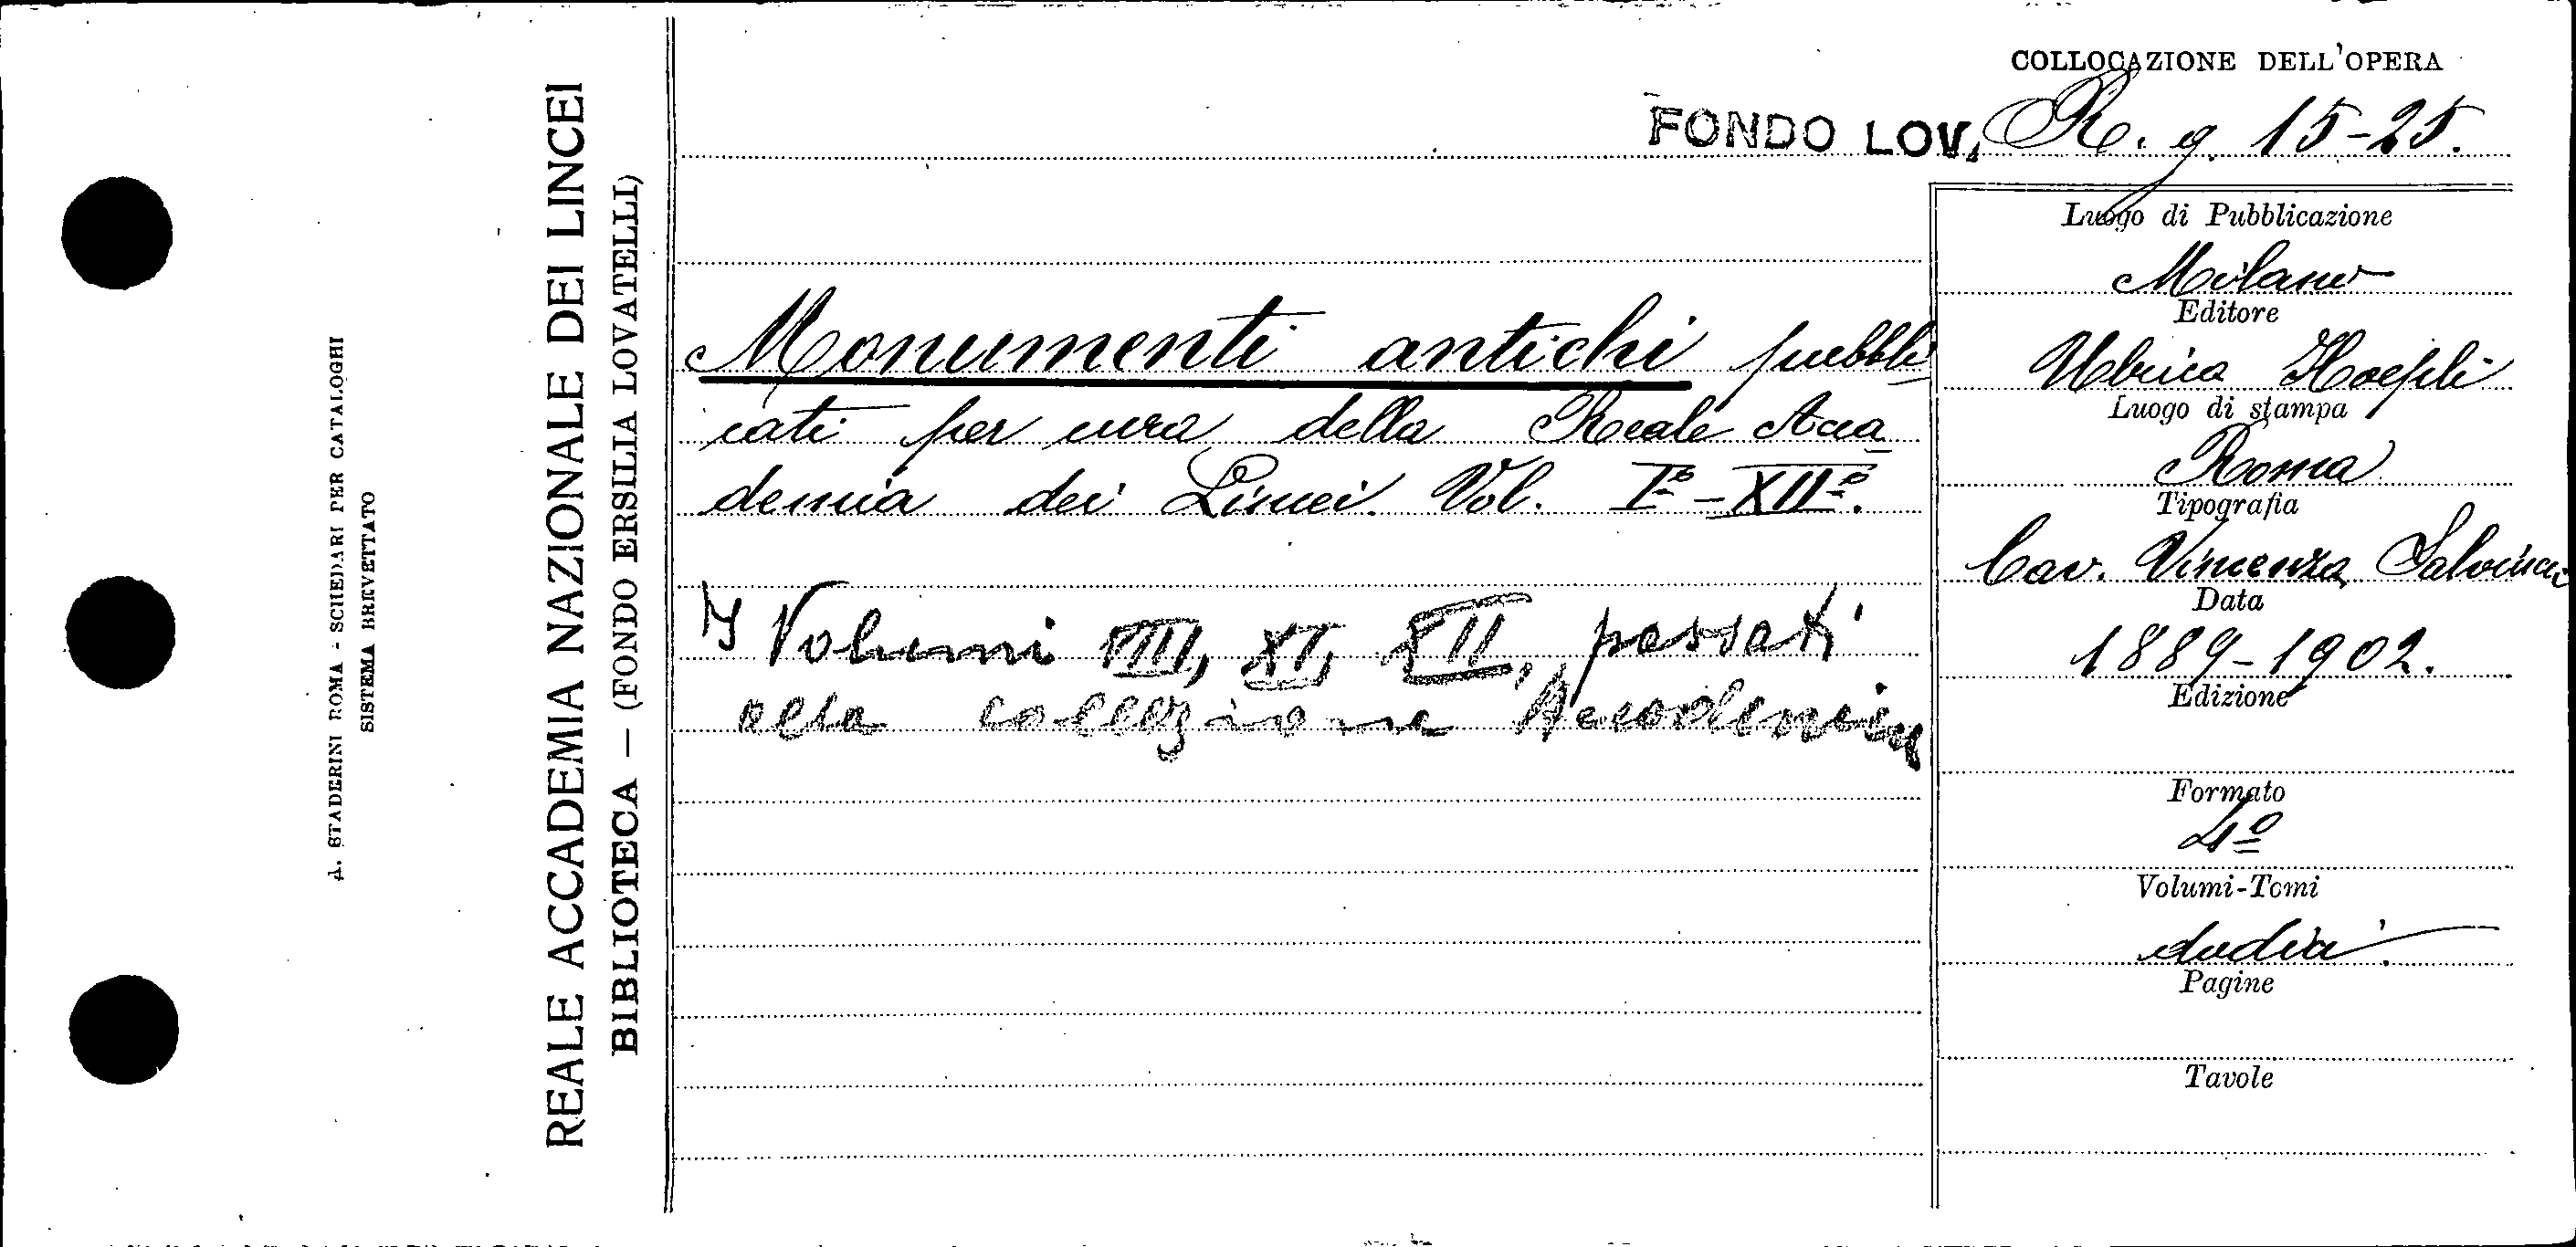 A. STADERINI ROMA - SCHEDARI PER CATALOGHI
SISTEMA BREVETTATO
REALE ACCADEMIA NAZIONALE DEI LINCEI
BIBLIOTECA — (FONDO ERSILIA LOVATELLI)
COLLOCAZIONE DELL'OPERA
FONDO LOV. R. g. 15-25.
Monumenti antichi pubbli
cati per cura della Reale Acca
demia dei Lincei. Vol. Iº - XIIº.
I Volumi VIII, XI, XII, passati
alla collezione Accademica
Luogo di Pubblicazione
Milano
Editore
Ulrico Hoepli
Luogo di stampa
Roma
Tipografia
Cav. Vincenzo Salviucci
Data
1889-1902.
Edizione
Formato
4º
Volumi-Tomi
dodici.
Pagine
Tavole